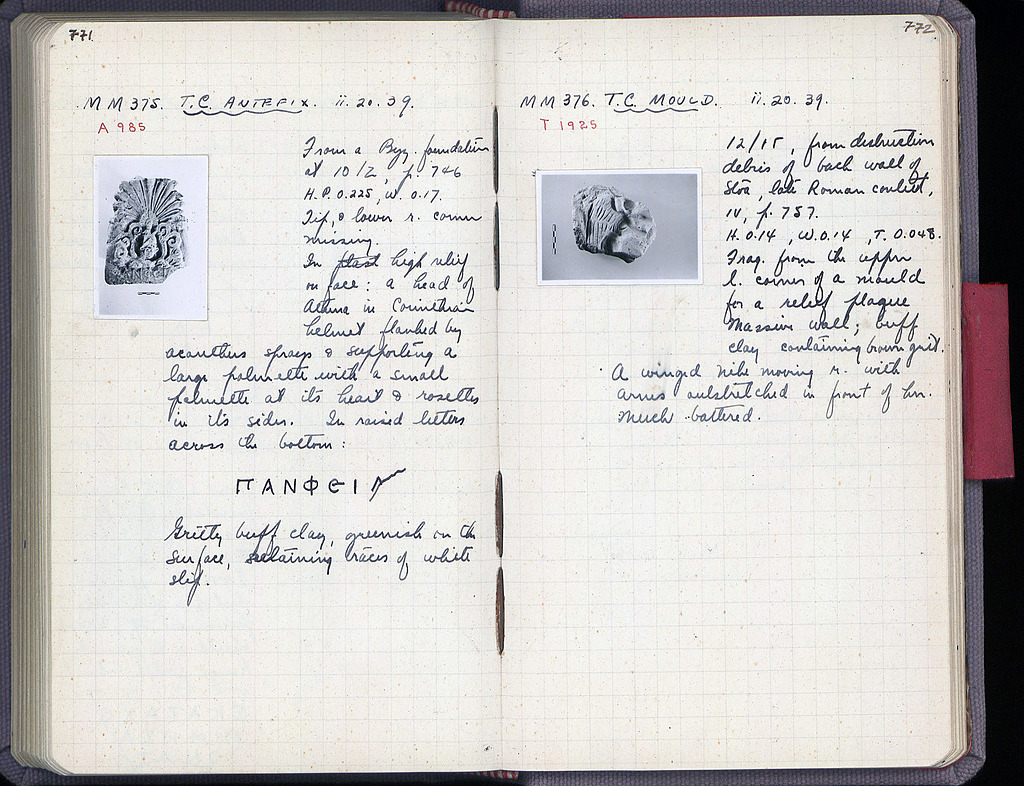 771
MM 375. T.C. ANTEFIX. ii. 20. 39.
A 985
From a Byz. foundation
at 10/Z, p. 746
H.P. 0.225, W. 0.17.
Tip, & lower r. corner
missing.
In high relief
on face: a head of
Athena in Corinthian
helmet flanked by
acanthus sprays & supporting a
large palmette with a small
palmette at its heart & rosettes
in its sides. In raised letters
across the bottom:
ΠΑΝΦΕΙ
Gritty buff clay, greenish on the
surface, retaining traces of white
slip.
772
MM 376. T.C. MOULD. ii. 20. 39.
T 1925
from destruction
debris of back wall of
Stoa, late Roman context,
IV, p. 757.
H. 0.14, W. 0.14, T. 0.048.
Frag. from the upper
l. corner of a mould
for a relief plaque
Massive wall; buff
clay containing brown grit.
A winged Nike moving r. with
arms outstretched in front of her.
Much battered.